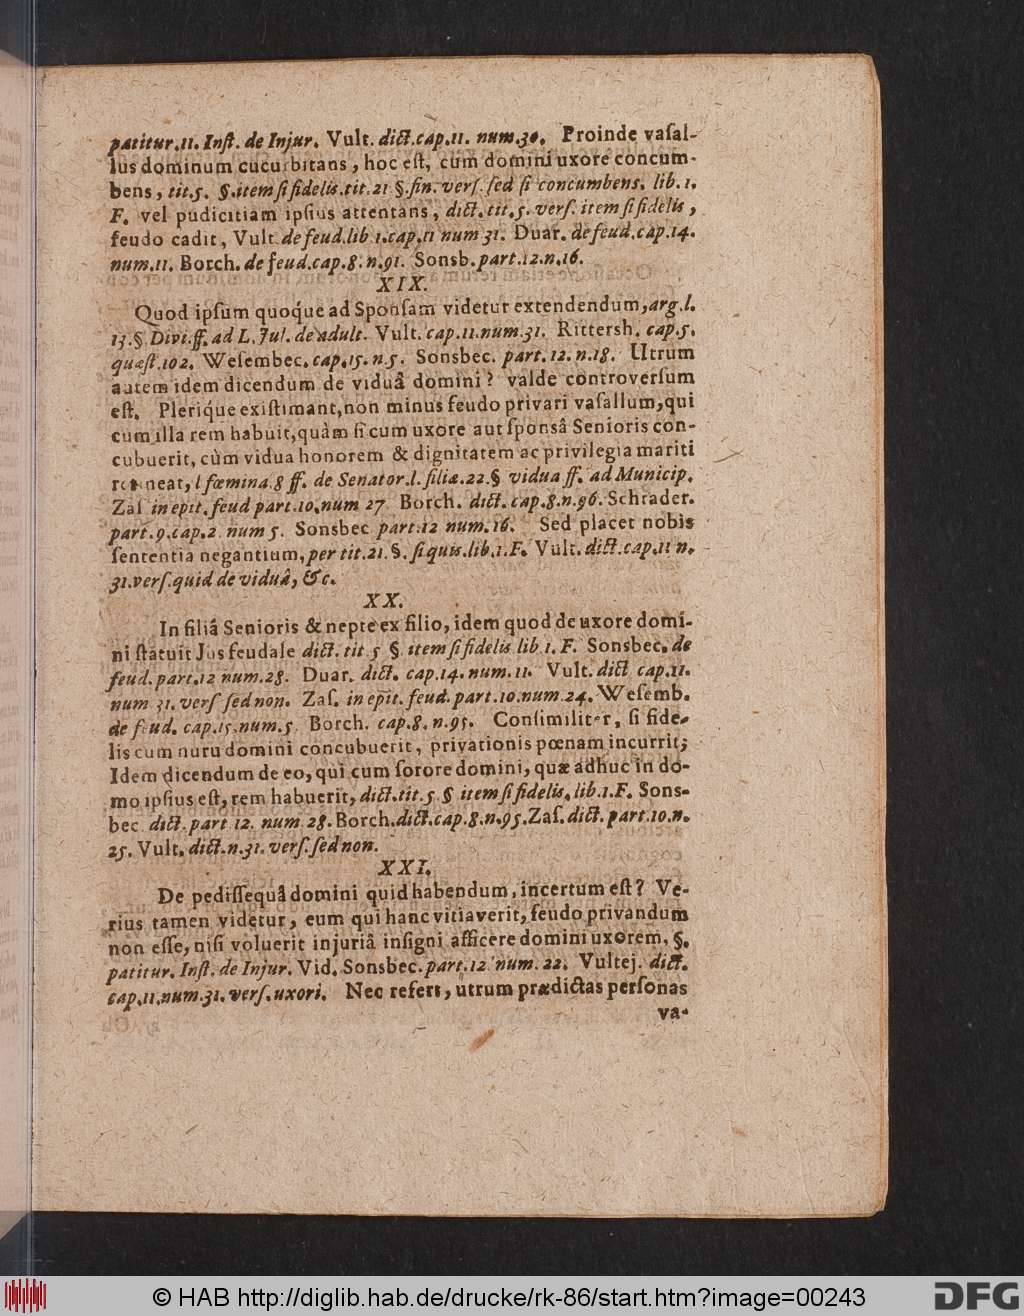 patitur.11. Inſt. de Injur. Vult. dict.cap.11. num.30. Proinde vaſal-
lus dominum cucurbitans, hoc eſt, cùm domini uxore concum-
bens, tit.5. §.item ſi fidelis.tit.21 §.fin. verſ. ſed ſi concumbens. lib. 1.
F. vel pudicitiam ipſius attentans, dict. tit. 5. verſ. item ſi fidelis,
feudo cadit, Vult de feud. lib 1. cap. 11 num 31. Duar. de feud. cap. 14.
num. 11. Borch. de feud. cap. 8. n. 91. Sonsb. part. 12. n. 16.
XIX.
Quod ipſum quoq́ue ad Sponſam videtur extendendum, arg. l.
13. § Divi. ff. ad L. Jul. de adult. Vult. cap. 11. num. 31. Rittersh. cap. 5.
quæſt. 102. Weſembec. cap. 15. n. 5. Sonsbec. part. 12. n. 18. Utrum
autem idem dicendum de viduâ domini? valde controverſum
eſt. Pleriq́ue exiſtimant, non minus feudo privari vaſallum, qui
cum illa rem habuit, quàm ſi cum uxore aut ſponsâ Senioris con-
cubuerit, cùm vidua honorem & dignitatem ac privilegia mariti
retineat, l fœmina. 8 ff. de Senator. l. filia. 22. § vidua ff. ad Municip.
Zaſ in epit. feud part. 10. num 27 Borch. dict. cap. 8. n. 96. Schrader.
part. 9. cap. 2 num 5. Sonsbec part. 12 num. 16. Sed placet nobis
ſententia negantium, per tit. 21. §. ſi quis. lib. 1. F. Vult. dict. cap. 11 n.
31. verſ. quid de viduâ, &c.
XX.
In filiâ Senioris & nepte ex filio, idem quod de uxore domi-
ni ſtatuit Jus feudale dict. tit 5 § item ſi fidelis lib. 1. F. Sonsbec. de
feud. part. 12 num. 28. Duar. dict. cap. 14. num. 11. Vult. dict cap. 11.
num 31. verſ ſed non. Zaſ. in epit. feud. part. 10. num. 24. Weſemb.
de feud. cap. 15. num. 5 Borch. cap. 8. n. 95. Conſimiliter, ſi fide-
lis cum nuru domini concubuerit, privationis pœnam incurrit;
Idem dicendum de eo, qui cum ſorore domini, quæ adhuc in do-
mo ipſius eſt, rem habuerit, dict. tit. 5. § item ſi fidelis. lib. 1. F. Sons-
bec dict. part 12. num. 28. Borch. dict. cap. 8. n. 95. Zaſ. dict. part. 10. n.
25. Vult. dict. n. 31. verſ. ſed non.
XXI.
De pediſſequâ domini quid habendum, incertum eſt? Ve-
rius tamen videtur, eum qui hanc vitiaverit, feudo privandum
non eſſe, niſi voluerit injuriâ inſigni afficere domini uxorem. §.
patitur. Inſt. de Injur. Vid. Sonsbec. part. 12 num. 22. Vultej. dict.
cap. 11. num. 31. verſ. uxori. Nec refert, utrum prædictas perſonas
va-
© HAB http://diglib.hab.de/drucke/rk-86/start.htm?image=00243
DFG